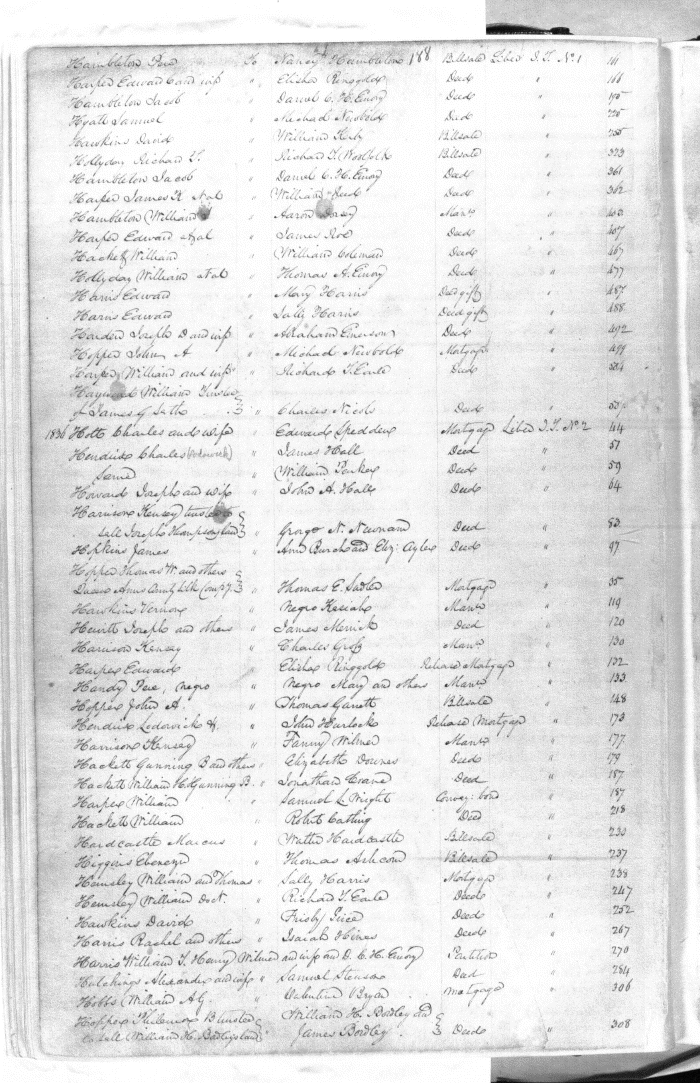 188
Hambleton Pere To Nancy Hambleton Billsale Liber J.T. No. 1 111
Harper Edward and wife " Elisha Ringgold Deed " 166
Hambleton Jacob " Daniel C. H. Emory Deed "
Hyatt Samuel " Michael Newbold Deed "
Hawkins David " William Billsale "
Hollyday Richard T. " Richard T. Woolfolk Billsale " 323
Hambleton Jacob " Daniel C. H. Emory Deed " 361
Harper James K et al " William Deed " 362
Hambleton William " Aaron Man. " 403
Harper Edward et al " James Roe Deed " 407
Hackett William " William Coleman Deed " 467
Hollyday William et al " Thomas A. Emory Deed " 477
Harris Edward " Mary Harris Deed gift " 487
Harris Edward " Sally Harris Deed gift " 488
Harden Joseph D and wife " Abraham Emerson Deed " 492
Hopper John A " Michael Newbold Mortgage " 499
Harper William and wife " Richard T. Earle Deed "
Hayward William Trustee
of James G Seth " Charles Nicols Deed "
1836 Holt Charles and wife " Edward Spedden Mortgage Liber J.T. No. 2 44
Hendrix Charles " James Hall Deed " 57
Same " William Parker Deed " 59
Howard Joseph and wife " John A. Hall Deed " 64
Harrison Kensey trustee to
sell Joseph Thompsons land " George N. Newnam Deed " 83
Hopkins James " Ann Burch and Eliz: Ayler Deed " 97
Hopper Thomas W. and others
Queen Anns County Silk Comp'y. " Thomas E. Sudler Mortgage " 35
Hawkins Vernon " Negro Keziah Man. " 119
Hewitt Joseph and others " James Merrick Deed " 120
Harrison Kensey " Charles Man. " 130
Harper Edward " Elisha Ringgold Release Mortgage " 132
Handy Pere, negro " Negro Mary and others Man. " 133
Hopper John A. " Thomas Garrett Billsale " 148
Hendrix Lodowick H. " John Hurlock Release Mortgage " 173
Harrison Kensey " Fanny Wilmer Man. " 177
Hackett Gunning B and others " Elizabeth Downes Deed " 179
Hackett William H. Gunning B. " Jonathan Crane Deed " 187
Harper William " Samuel L. Wright Convey: bond " 187
Hackett William " Robert Deed " 218
Hardcastle Marcus " Walter Hardcastle Billsale " 230
Higgins Ebenezer " Thomas Ashcom Billsale " 237
Hemsley William and Thomas " Sally Harris Mortgage " 238
Hemsley William Doct. " Richard T. Earle Deed " 247
Hawkins David " Frisby Price Deed " 252
Harris Rachel and others " Isaiah Hines Deed " 267
Harris William T. Henry Wilmer and wife an D. C. H. Emory Partition " 270
Hutchings Alexander and wife " Samuel Deed " 284
Hobbs William A G. " Valentine Bryan Mortgage " 306
Hopper Philemon B Trustee William H. Bordley and
to sell William H. Bordleys land James Bordley Deed " 308